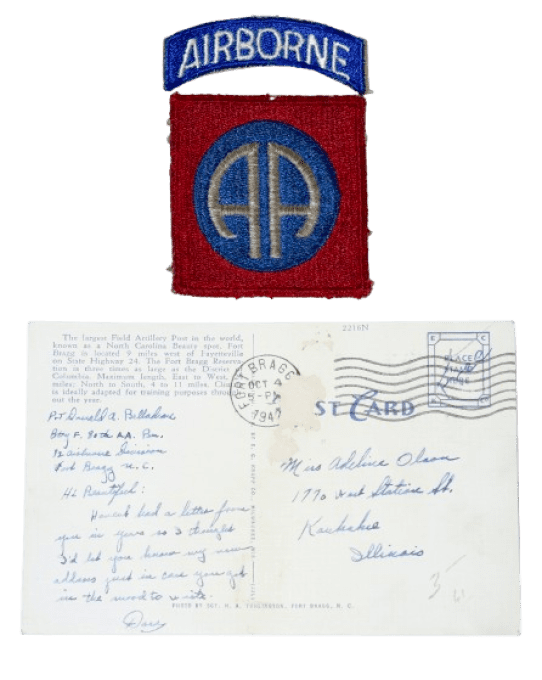 AIRBORNE
AA
The largest Field Artillery Post in the world,
known as a North Carolina Beauty spot, Fort
Bragg is located 9 miles west of Fayetteville
on State Highway 24. The Fort Bragg Reserva-
tion is three times as large as the District
Columbia. Maximum length, East to West,
miles; North to South, 4 to 11 miles.
is ideally adapted for training purposes
out the year.
2216N
PLACE
FORT BRAGG
OCT 4
1947
ST CARD
Pvt Donald A.
Btry F. 80th AA. Bn.
Airborne Division
Fort Bragg N.C.
Hi Beautiful:
Haven't had a letter from
you in so I thought
I'd let you know my new
address just in case you get
in the mood to write.
Miss Adeline Olson
1770 West Station St.
Kankakee
Illinois
PHOTO BY SGT. FORT BRAGG, N. C.